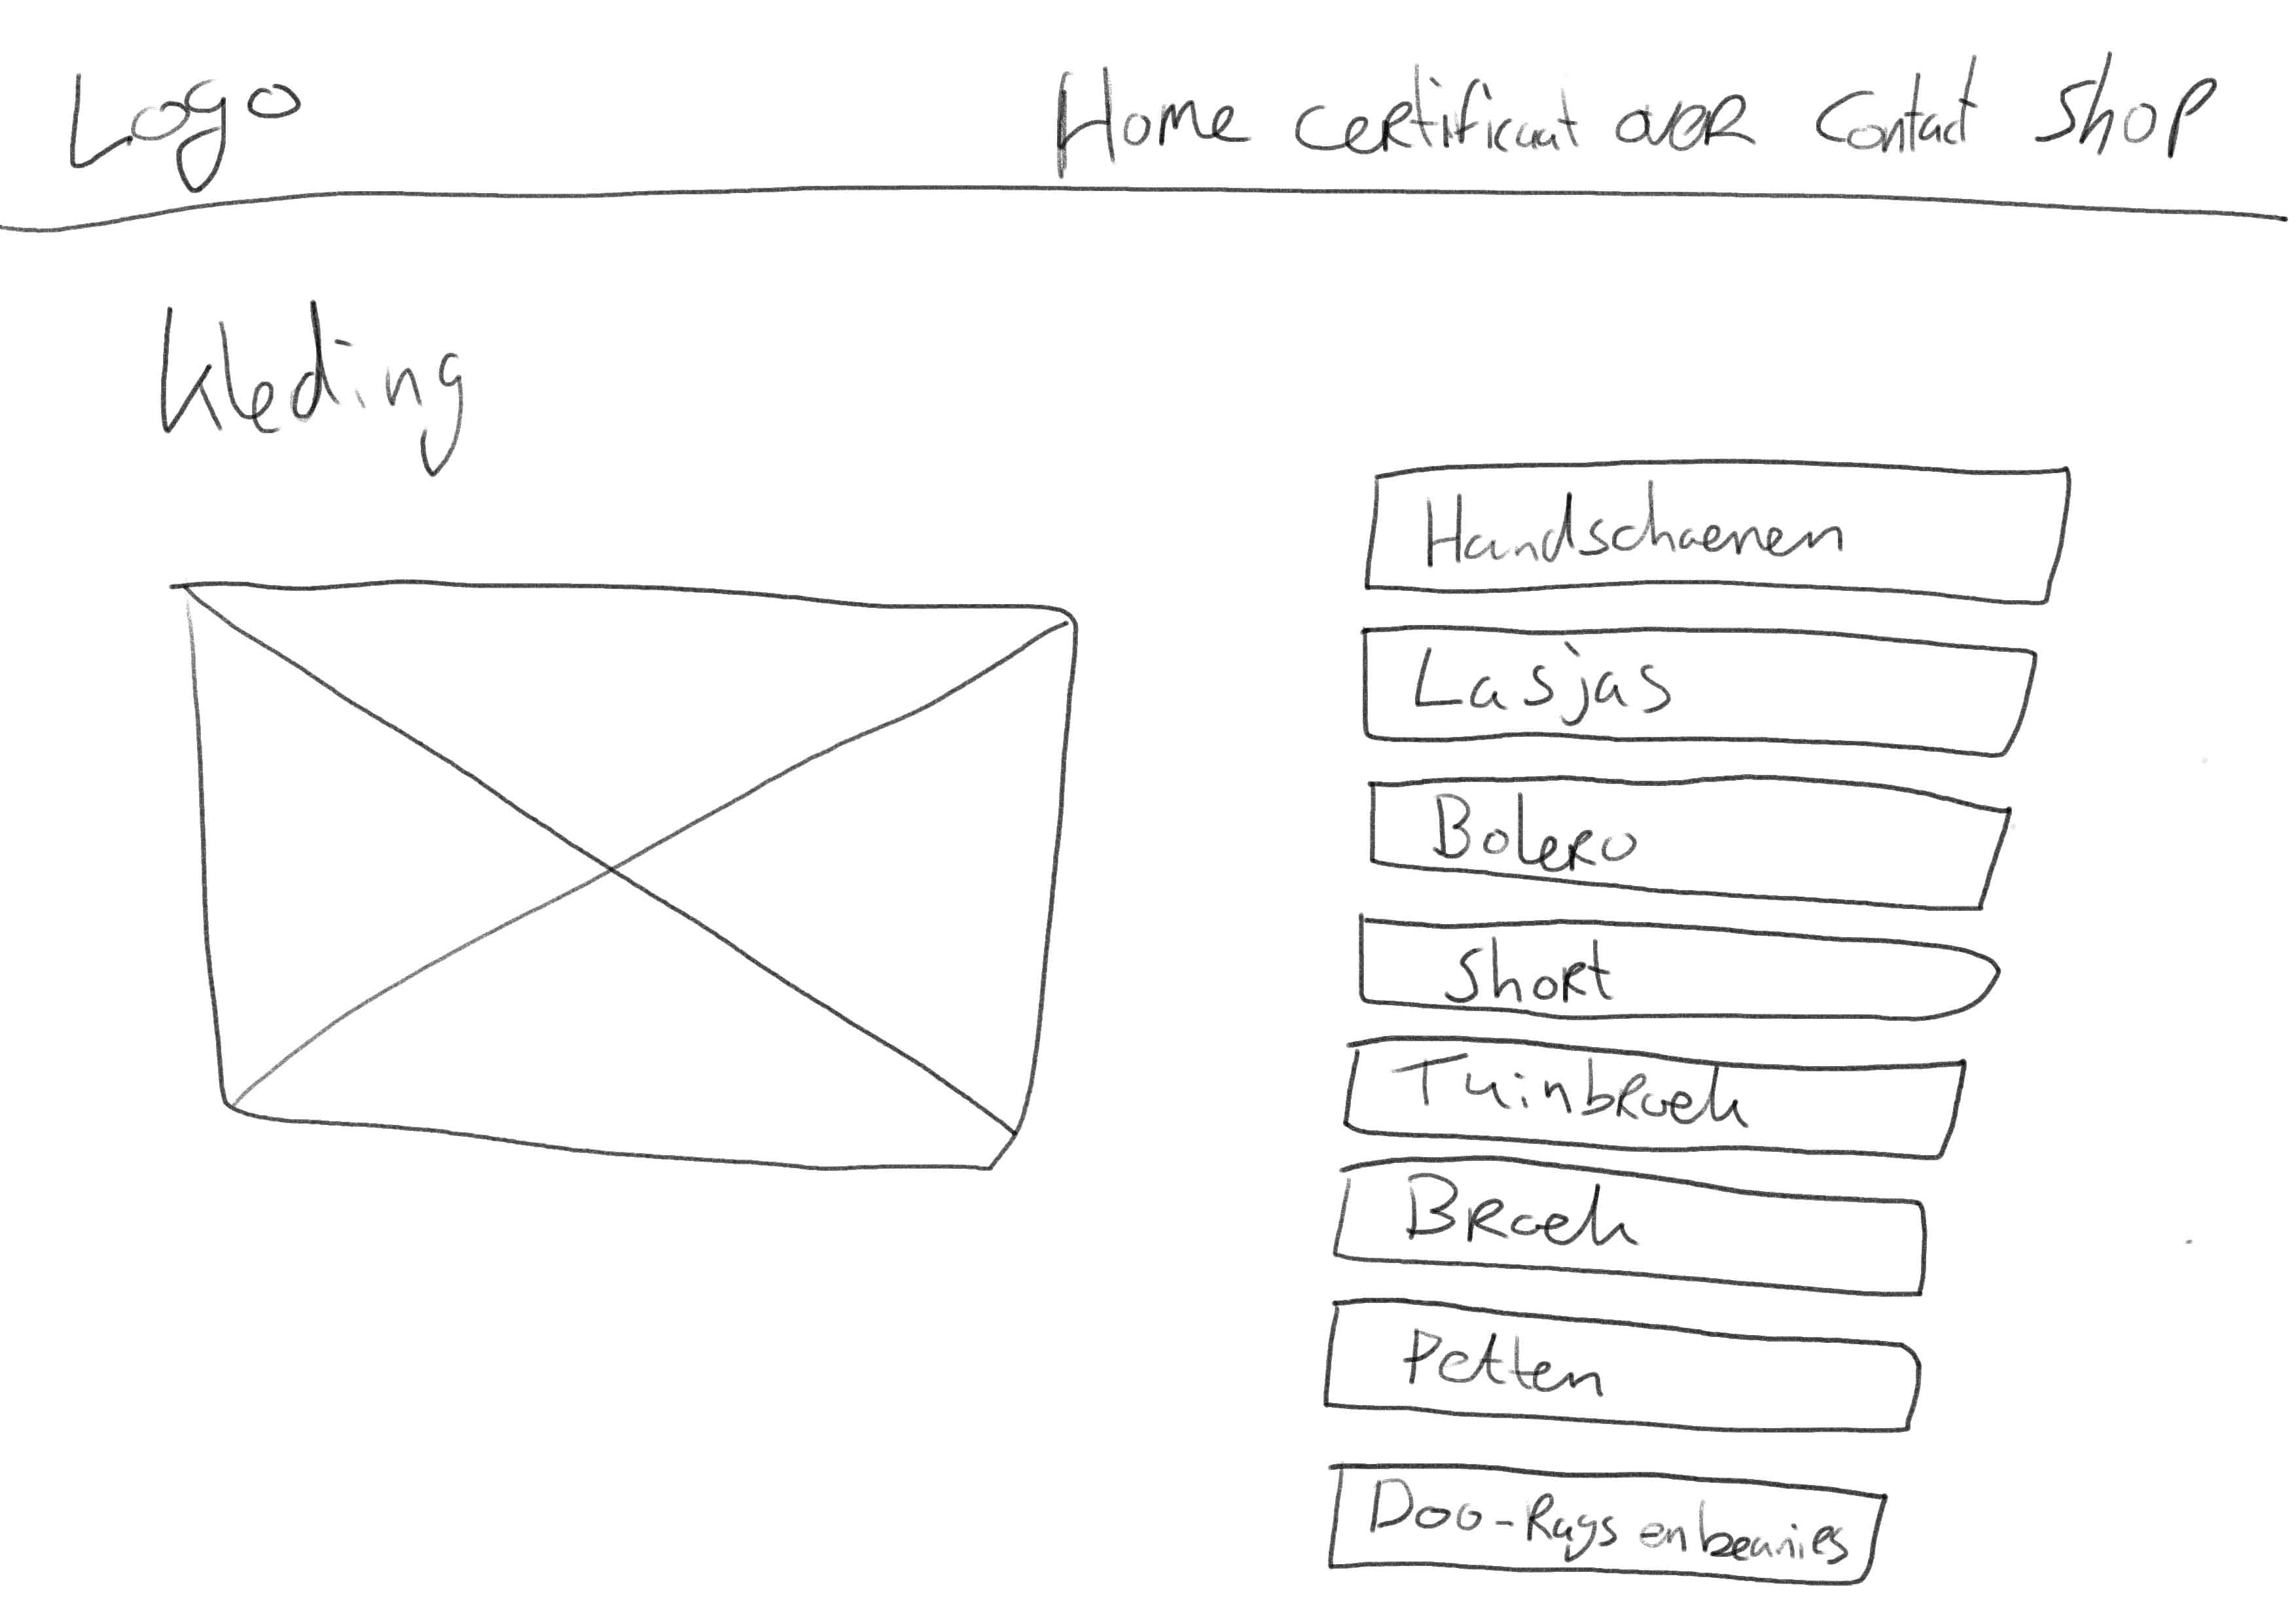 Logo
Home Certificaat over Contact Shop
Kleding
Handschoenen
Lasjas
Bolero
Short
Tuinbroek
Broek
Petten
Doo-Rags en beanies